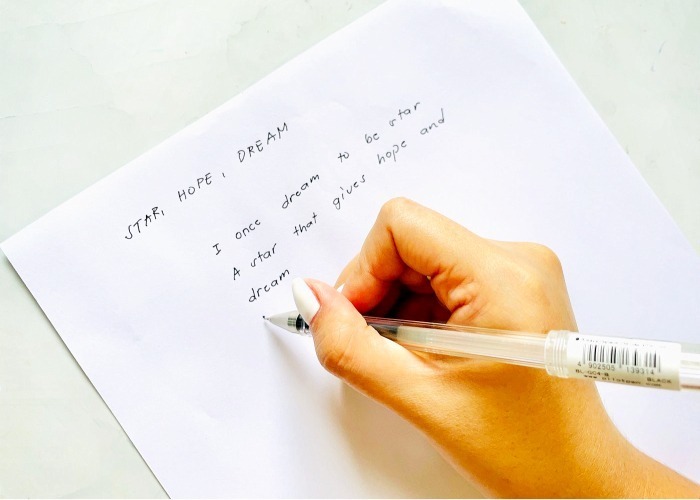 STAR, HOPE, DREAM
I once dream to be star
A star that gives hope and
dream
4 902505 139314
BL-GC4-B BLACK